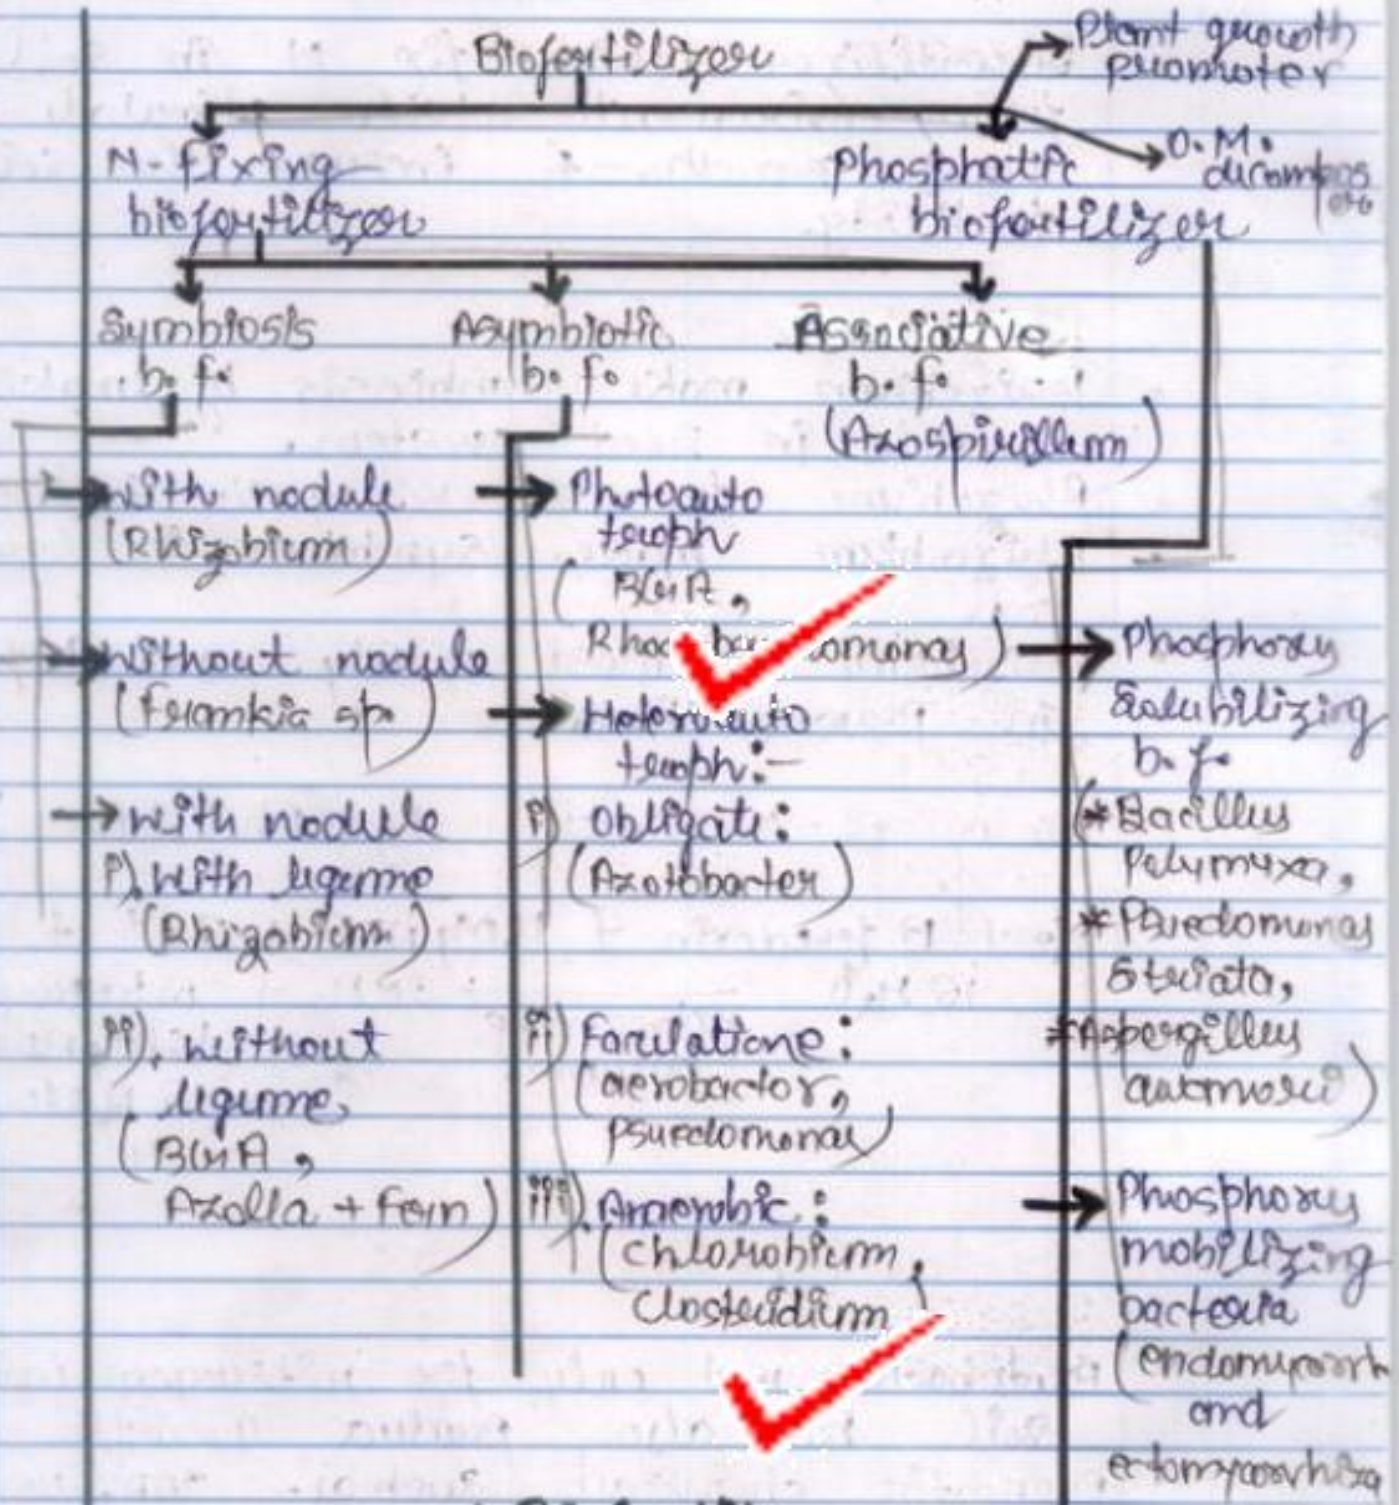 Biofertilizer
Plant growth
promoter
O.M.
decompos
er
N-fixing
biofertilizer
Phosphatic
biofertilizer
Symbiosis
b.f.
Asymbiotic
b.f.
Associative
b.f.
(Azospirillum)
with nodule
(Rhizobium)
without nodule
(Frankia sp.)
with nodule
i). with legume
(Rhizobium)
ii). without
legume
(BGA,
Azolla + Fern)
Photoauto
troph
(BGA,
Heteroauto
troph:-
i) Obligate:
(Azotobacter)
ii) Farulatione:
(aerobactor,
Psuedomonas)
iii). Anaerobic:
(Chlorobium,
Closteridium)
Phosphorus
Solubilizing
b.f.
(*Bacillus
Polymyxa,
*Psuedomonas
Striata,
*Aspergillus
Phosphorus
mobilizing
bacteria
(endomycorrh
and
ectomycorrhiza